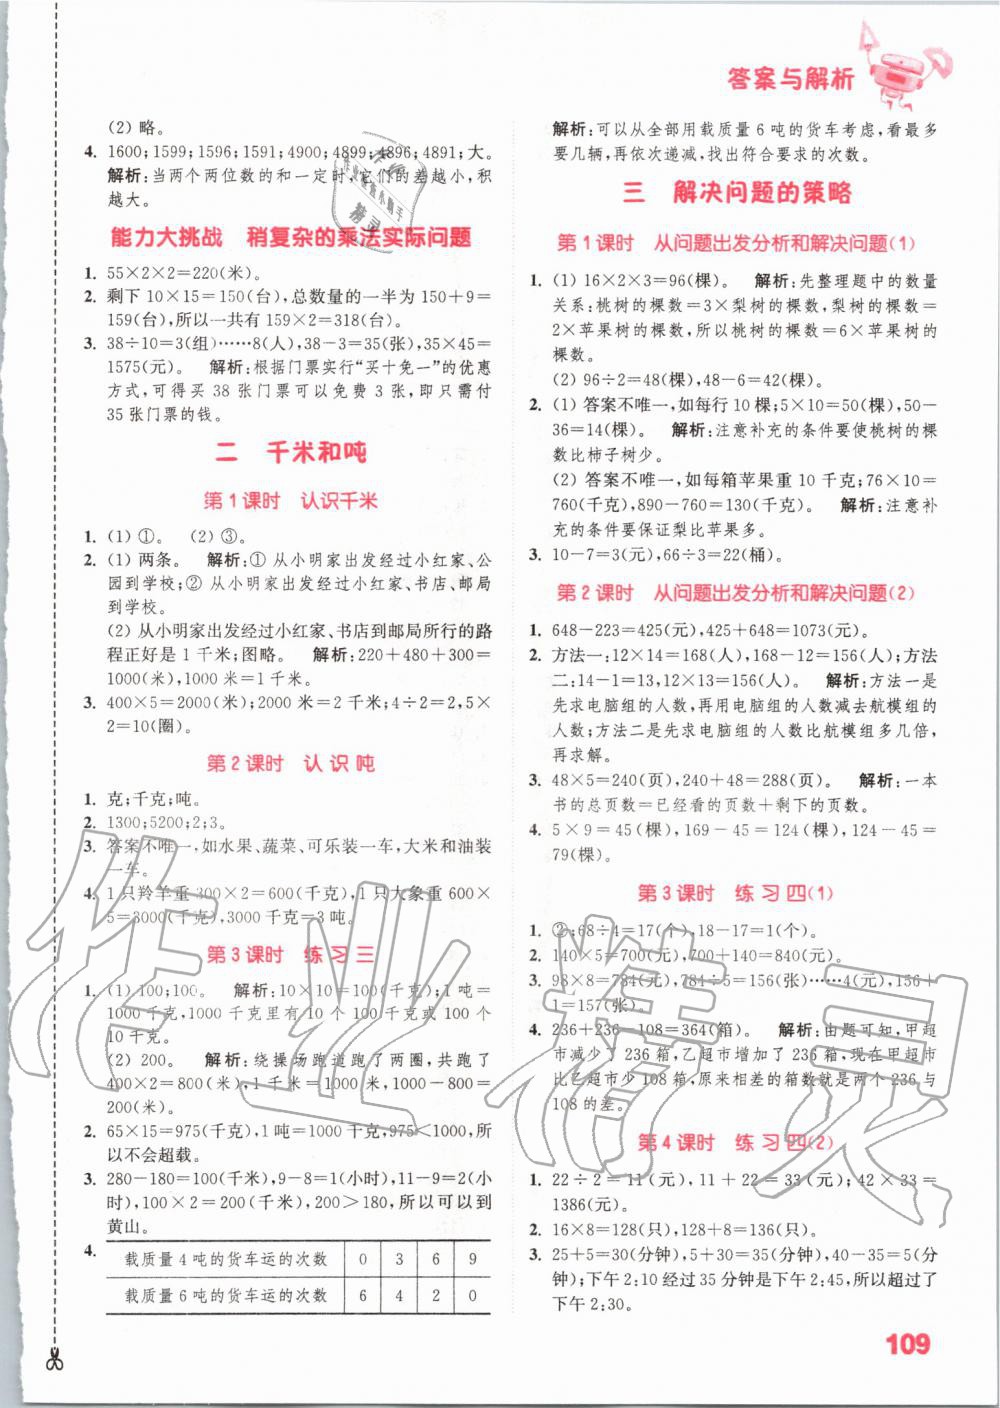 答案与解析
(2) 略。
4. 1600;1599;1596;1591;4900;4899;4896;4891;大。
解析:当两个两位数的和一定时,它们的差越小,积
越大。
能力大挑战 稍复杂的乘法实际问题
1. 55×2×2=220(米)。
2. 剩下 10×15=150(台),总数量的一半为 150+9=
159(台),所以一共有 159×2=318(台)。
3. 38÷10=3(组)……8(人),38-3=35(张),35×45=
1575(元)。 解析:根据门票实行“买十免一”的优惠
方式,可得买 38 张门票可以免费 3 张,即只需付
35 张门票的钱。
二 千米和吨
第 1 课时 认识千米
1. (1) ①。 (2) ③。
2. (1) 两条。 解析:① 从小明家出发经过小红家、公
园到学校;② 从小明家出发经过小红家、书店、邮局
到学校。
(2) 从小明家出发经过小红家、书店到邮局所行的路
程正好是 1 千米;图略。 解析:220+480+300=
1000(米),1000 米=1 千米。
3. 400×5=2000(米);2000 米=2 千米;4÷2=2,5×
2=10(圈)。
第 2 课时 认 识 吨
1. 克;千克;吨。
2. 1300;5200;2;3。
3. 答案不唯一,如水果、蔬菜、可乐装一车,大米和油装
一车。
4. 1 只羚羊重 300×2=600(千克),1 只大象重 600×
5=3000(千克),3000 千克=3 吨。
第 3 课时 练 习 三
1. (1) 100;100。 解析:10×10=100(千克);1 吨=
1000 千克,1000 千克里有 10 个 100 千克或 100 个
10 千克。
(2) 200。 解析:绕操场跑道跑了两圈,共跑了
400×2=800(米),1 千米=1000 米,1000-800=
200(米)。
2. 65×15=975(千克),1 吨=1000 千克,975<1000,所
以不会超载。
3. 280-180=100(千米),9-8=1(小时),11-9=2(小
时),100×2=200(千米),200>180,所以可以到
黄山。
4. 载质量 4 吨的货车运的次数 0 3 6 9
载质量 6 吨的货车运的次数 6 4 2 0
解析:可以从全部用载质量 6 吨的货车考虑,看最多
要几辆,再依次递减,找出符合要求的次数。
三 解决问题的策略
第 1 课时 从问题出发分析和解决问题(1)
1. (1) 16×2×3=96(棵)。 解析:先整理题中的数量
关系:桃树的棵数=3×梨树的棵数,梨树的棵数=
2×苹果树的棵数,所以桃树的棵数=6×苹果树的
棵数。
(2) 96÷2=48(棵),48-6=42(棵)。
2. (1) 答案不唯一,如每行 10 棵;5×10=50(棵),50-
36=14(棵)。 解析:注意补充的条件要使桃树的棵
数比柿子树少。
(2) 答案不唯一,如每箱苹果重 10 千克;76×10=
760(千克),890-760=130(千克)。 解析:注意补
充的条件要保证梨比苹果多。
3. 10-7=3(元),66÷3=22(桶)。
第 2 课时 从问题出发分析和解决问题(2)
1. 648-223=425(元),425+648=1073(元)。
2. 方法一:12×14=168(人),168-12=156(人);方法
二:14-1=13,12×13=156(人)。 解析:方法一是
先求电脑组的人数,再用电脑组的人数减去航模组的
人数;方法二是先求电脑组的人数比航模组多几倍,
再求解。
3. 48×5=240(页),240+48=288(页)。 解析:一本
书的总页数=已经看的页数+剩下的页数。
4. 5×9=45(棵),169-45=124(棵),124-45=
79(棵)。
第 3 课时 练 习 四(1)
1. ②;68÷4=17(个),18-17=1(个)。
2. 140×5=700(元),700+140=840(元)。
3. 98×8=784(元),784÷5=156(张)……4(元),156+
1=157(张)。
4. 236+236-108=364(箱)。 解析:由题可知,甲超
市减少了 236 箱,乙超市减少了 236 箱后,甲超市
比乙超市少 108 箱,原来相差的箱数就是两个 236 与
108 的差。
第 4 课时 练 习 四(2)
1. 22÷2=11(元),11+22=33(元);42×33=
1386(元)。
2. 16×8=128(只),128+8=136(只)。
3. 25+5=30(分钟),5+30=35(分钟),30+5=35(分
钟);下午 2:10 经过 35 分钟是下午 2:45,所以超过了
下午 2:30。
109